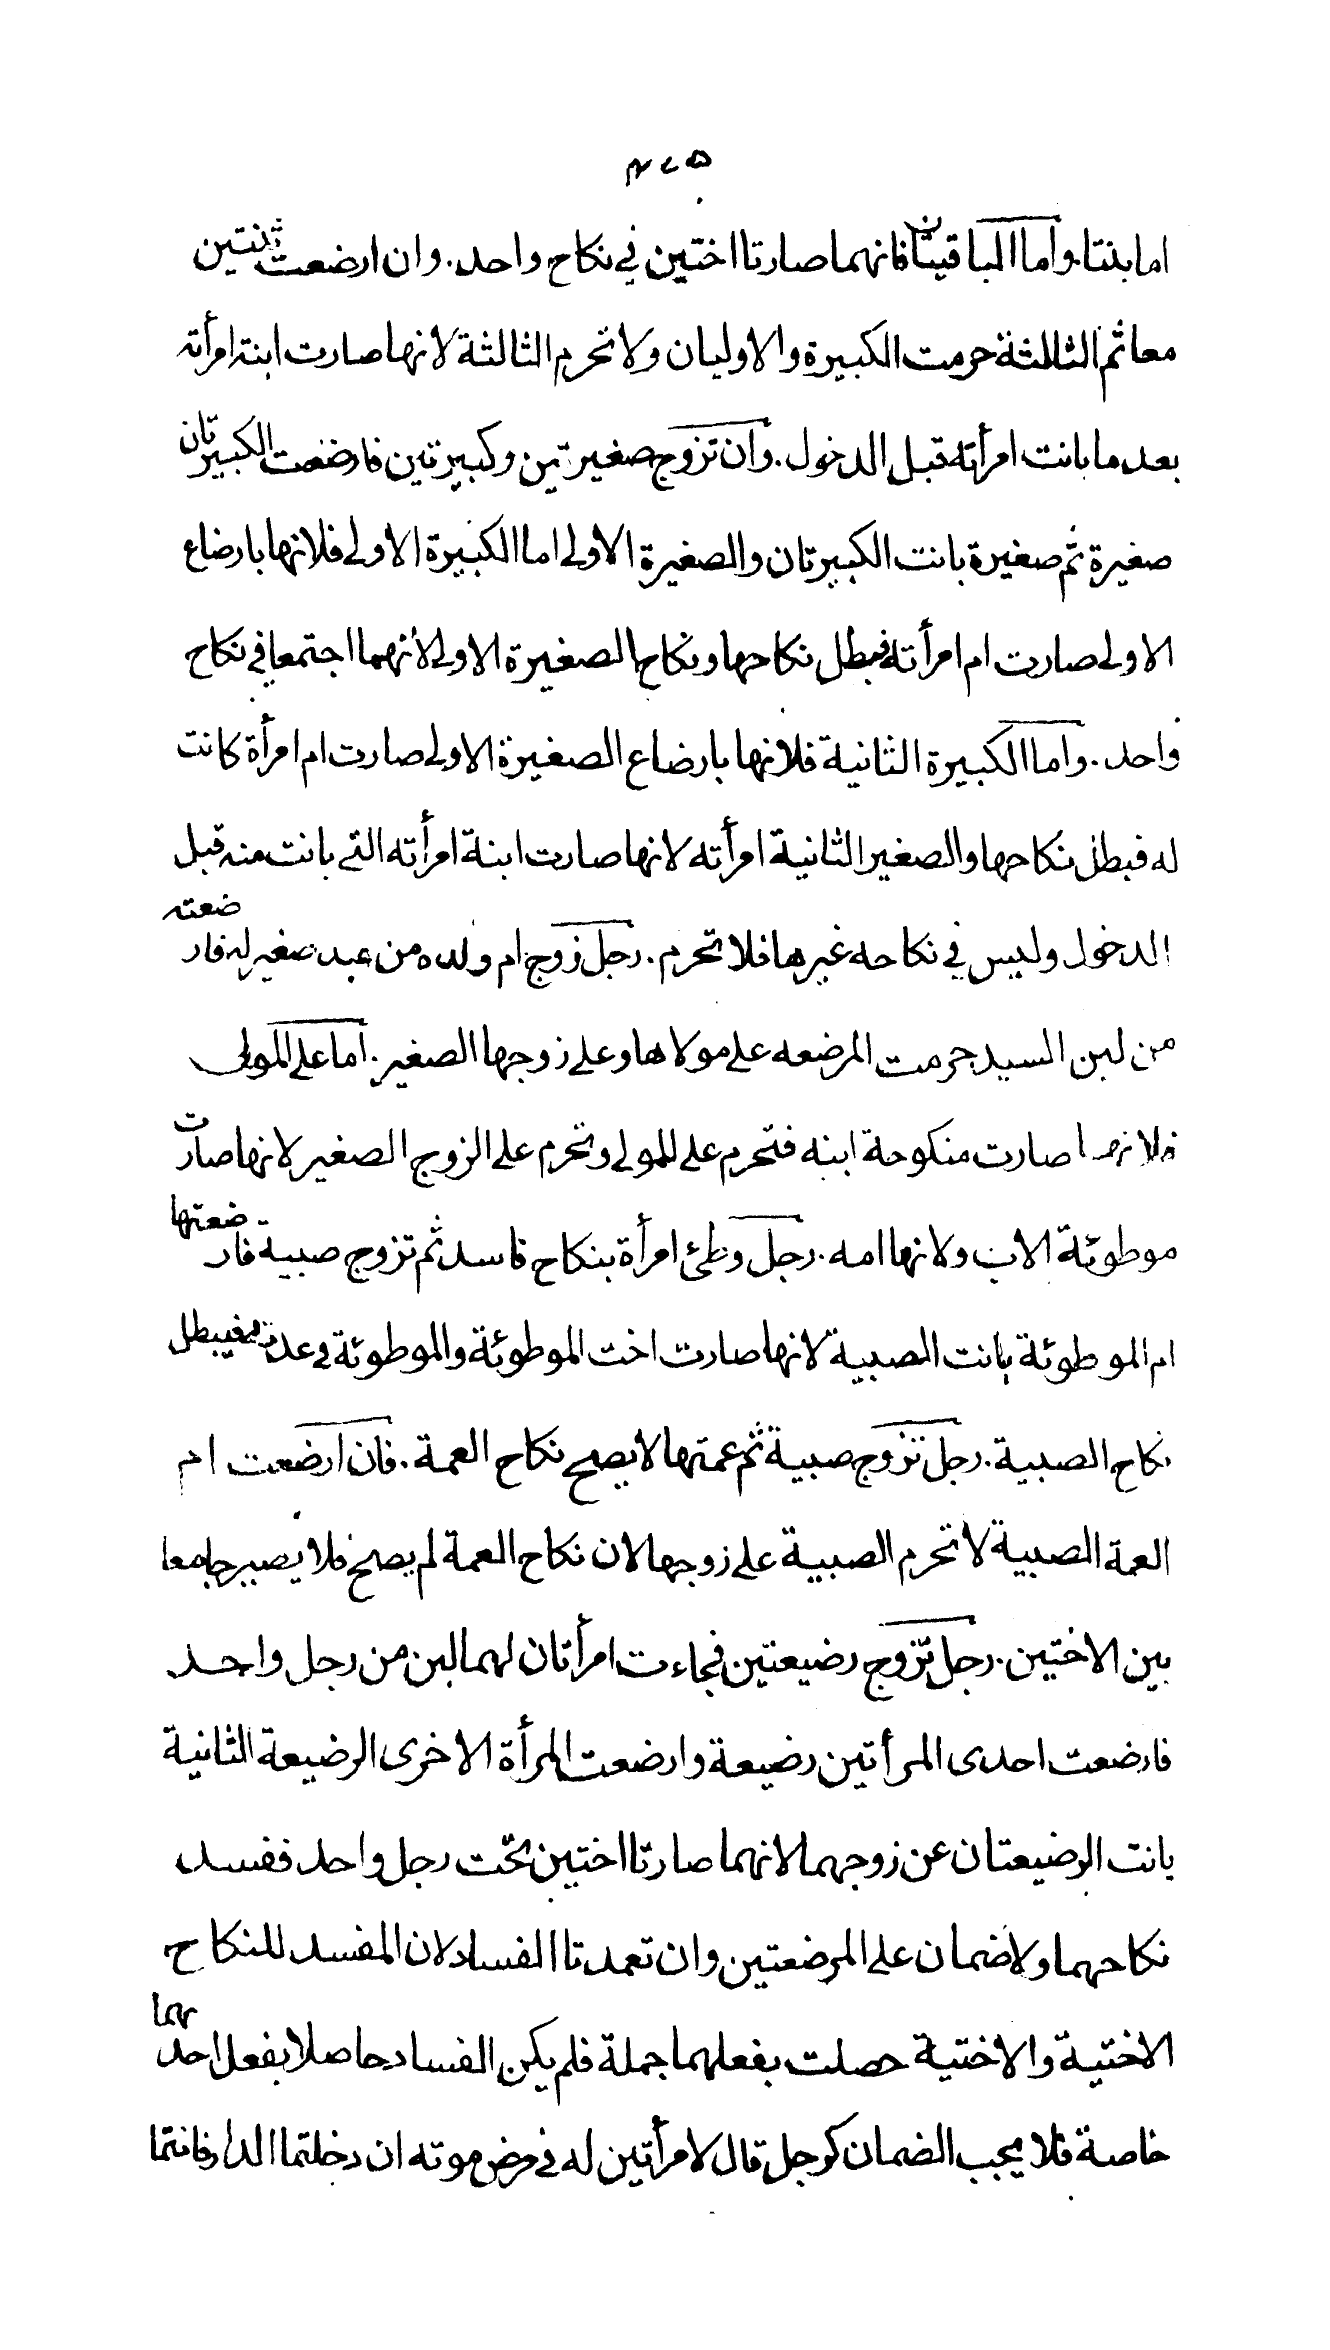 ٤٢٥
اما بنتا. واما الباقيتان فانهما صارتا اختين في نكاح واحد. وان ارضعت ثنتين
معا ثم الثالثة حرمت الكبيرة والاوليان ولا تحرم الثالثة لانها صارت ابنة امرأته
بعد ما بانت امرأته قبل الدخول. وان تزوج صغيرتين وكبيرتين فارضعت الكبيرتان
صغيرة ثم صغيرة بانت الكبيرتان والصغيرة الاولى اما الكبيرة الاولى فلانها بارضاع
الاولى صارت ام امرأته فبطل نكاحها ونكاح الصغيرة الاولى لانهما اجتمعا في نكاح
واحد. واما الكبيرة الثانية فلانها بارضاع الصغيرة الاولى صارت ام امرأة كانت
له فبطل نكاحها والصغير الثانية امرأته لانها صارت ابنة امرأته التي بانت منه قبل
الدخول وليس في نكاحه غيرها فلا تحرم. رجل زوج ام ولده من عبد صغير له فارضعته
من لبن السيد حرمت المرضعه على مولاها وعلى زوجها الصغير. اما على المولى
فلانها صارت منكوحة ابنه فتحرم على المولى وتحرم على الزوج الصغير لانها صارت
موطوئة الاب ولانها امه. رجل وطئ امرأة بنكاح فاسد ثم تزوج صبية فارضعتها
ام الموطوئة بانت الصبية لانها صارت اخت الموطوئة والموطوئة في عدته فيبطل
نكاح الصبية. رجل تزوج صبية ثم عمتها لا يصح نكاح العمة. فان ارضعت ام
العمة الصبية لا تحرم الصبية على زوجها لان نكاح العمة لم يصح فلا يصير جامعا
بين الاختين. رجل تزوج رضيعتين فجاءت امرأتان لهما لبن من رجل واحد
فارضعت احدى المرأتين رضيعة وارضعت المرأة الاخرى الرضيعة الثانية
بانت الرضيعتان عن زوجهما لانهما صارتا اختين تحت رجل واحد ففسد
نكاحهما ولا ضمان على المرضعتين وان تعمدتا الفساد لان المفسد للنكاح
الاختية والاختية حصلت بفعلهما جملة فلم يكن الفساد حاصلا بفعل احدهما
خاصة فلا يجب الضمان كرجل قال لامرأتين له في مرض موته ان دخلتما الدار فانتما